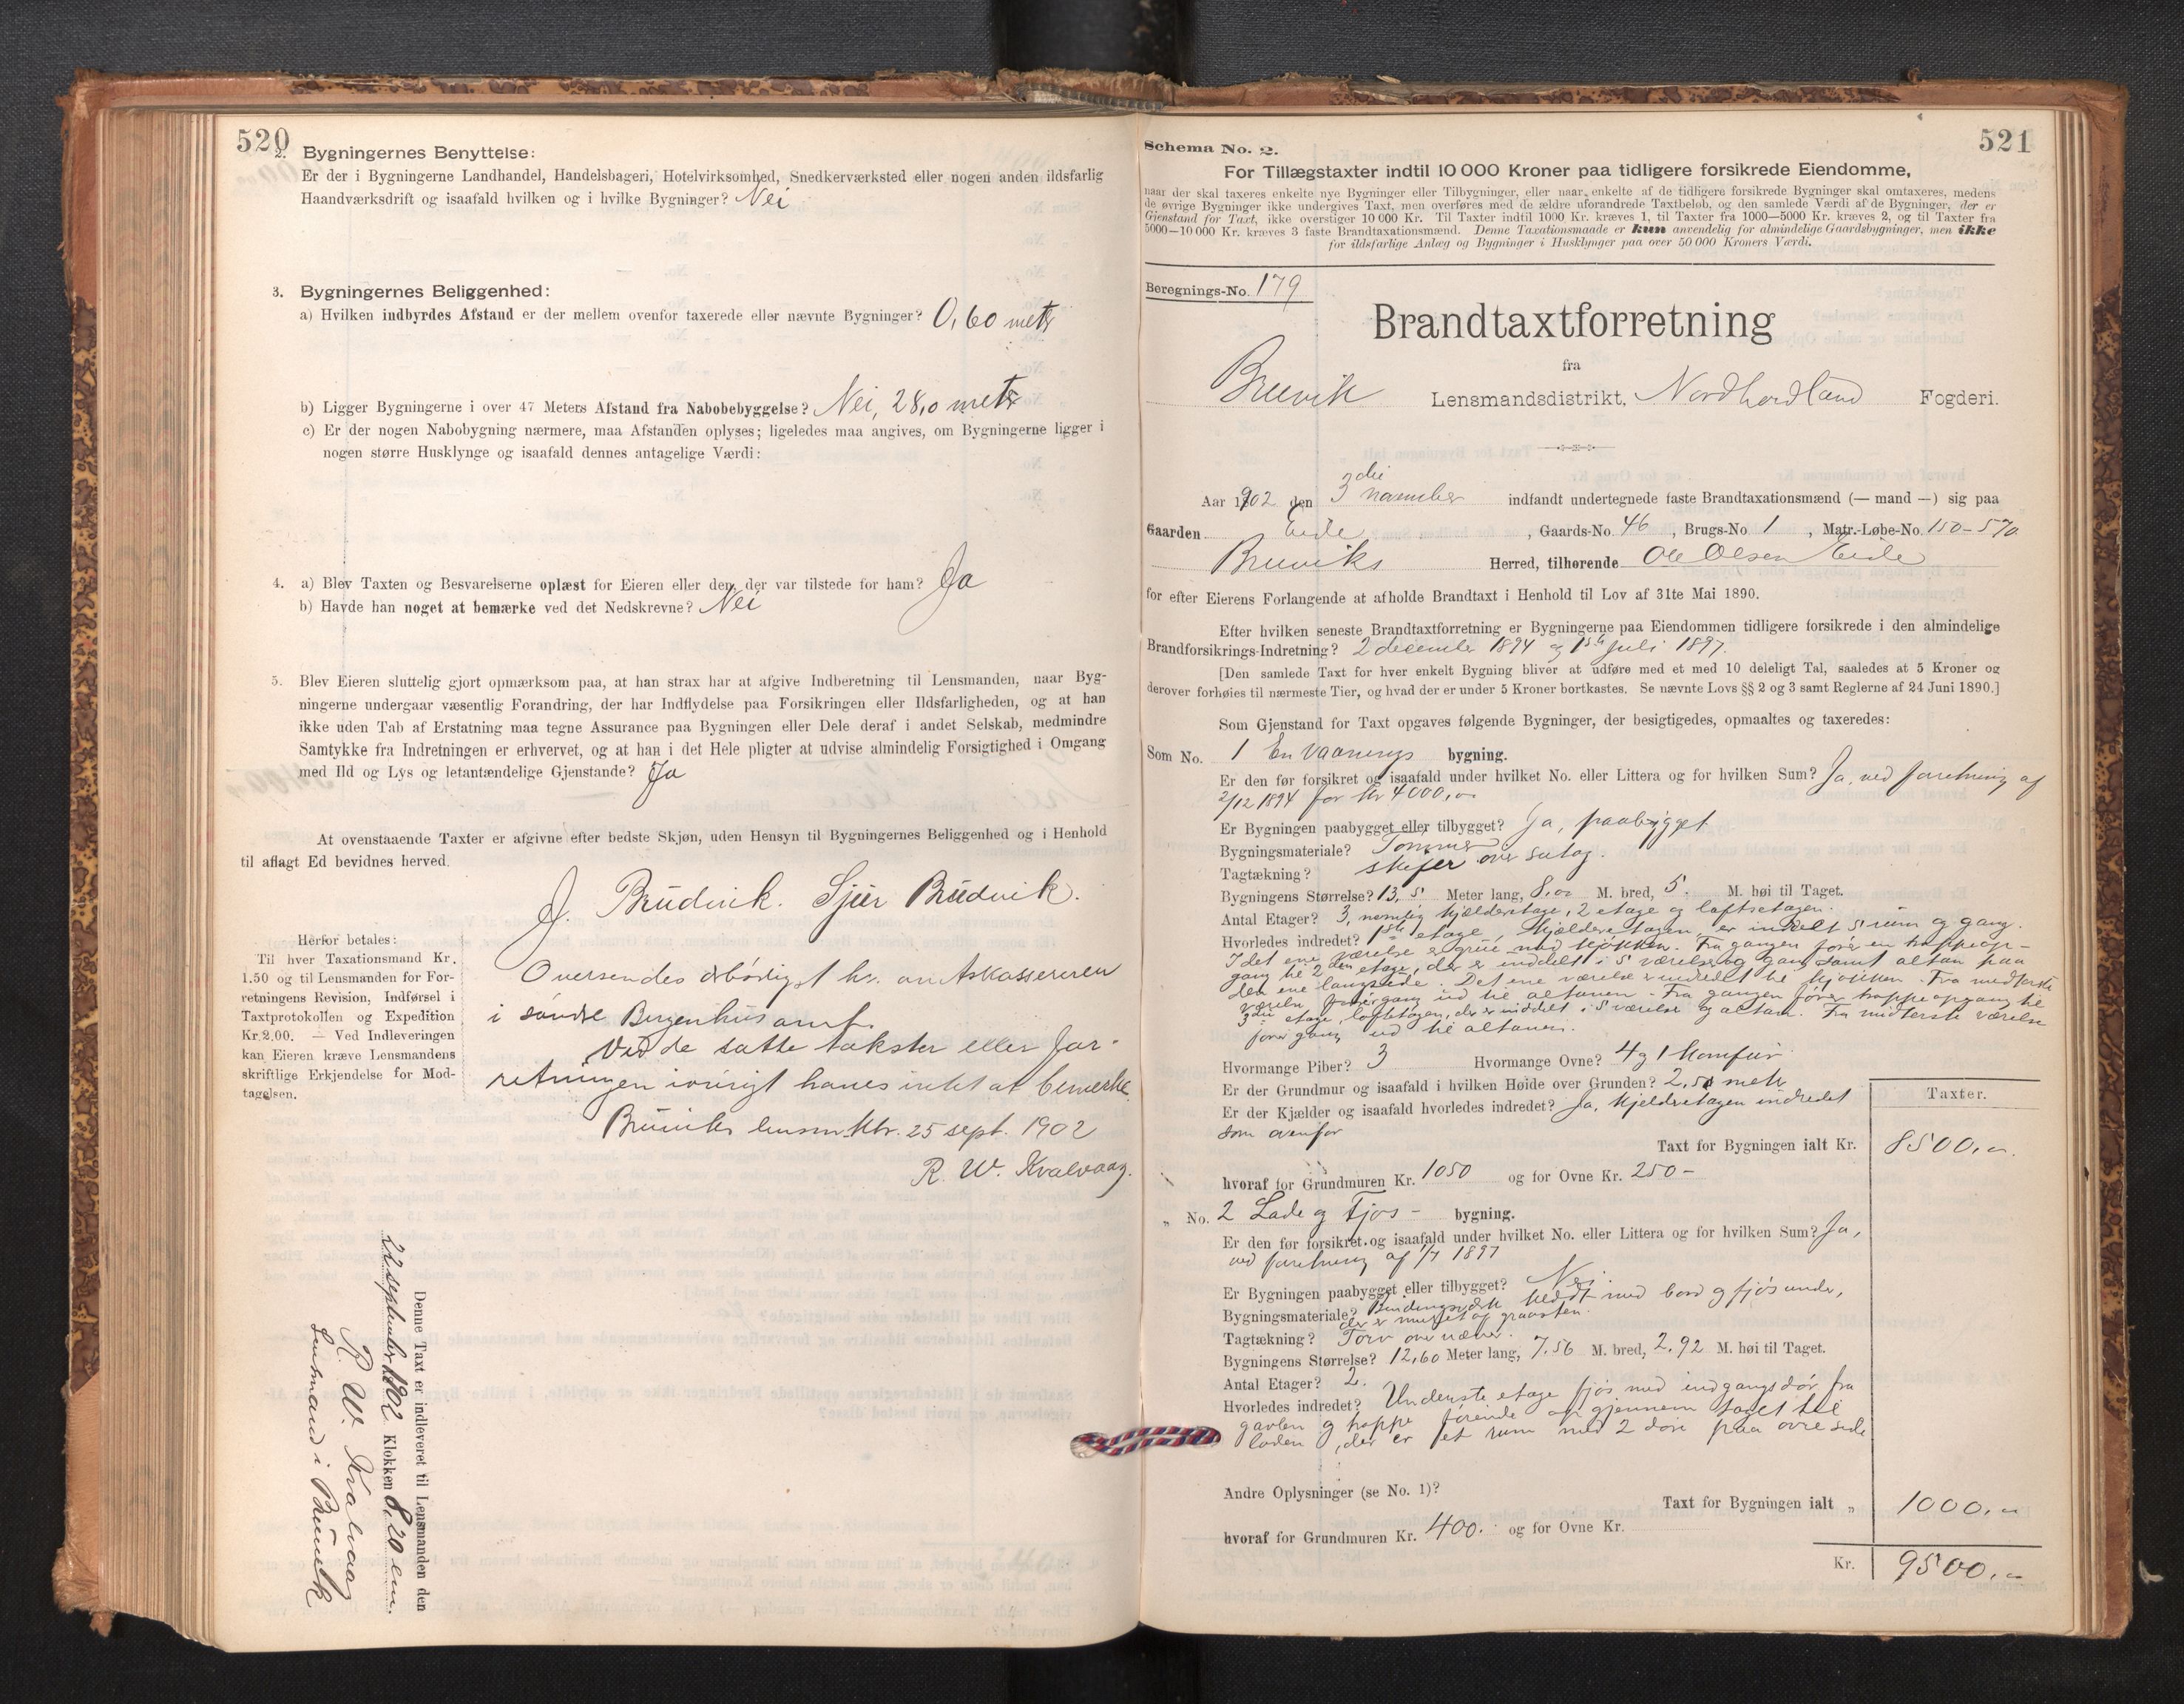 520
2. Bygningernes Benyttelse:
Er der i Bygningerne Landhandel, Handelsbageri, Hotelvirksomhed, Snedkerværksted eller nogen anden ildsfarlig
Haandværksdrift og isaafald hvilken og i hvilke Bygninger? Nei
3. Bygningernes Beliggenhed:
a) Hvilken indbyrdes Afstand er der mellem ovenfor taxerede eller nævnte Bygninger? 0,60 metr
b) Ligger Bygningerne i over 47 Meters Afstand fra Nabobebyggelse? Nei, 28,0 metr
c) Er der nogen Nabobygning nærmere, maa Afstanden oplyses; ligeledes maa angives, om Bygningerne ligger i
nogen større Husklynge og isaafald dennes antagelige Værdi:
4. a) Blev Taxten og Besvarelserne oplæst for Eieren eller den, der var tilstede for ham? Ja
b) Havde han noget at bemærke ved det Nedskrevne? Nei
5. Blev Eieren sluttelig gjort opmærksom paa, at han strax har at afgive Indberetning til Lensmanden, naar Byg-
ningerne undergaar væsentlig Forandring, der har Indflydelse paa Forsikringen eller Ildsfarligheden, og at han
ikke uden Tab af Erstatning maa tegne Assurance paa Bygningen eller Dele deraf i andet Selskab, medmindre
Samtykke fra Indretningen er erhvervet, og at han i det Hele pligter at udvise almindelig Forsigtighed i Omgang
med Ild og Lys og letantændelige Gjenstande? Ja
At ovenstaaende Taxter er afgivne efter bedste Skjøn, uden Hensyn til Bygningernes Beliggenhed og i Henhold
til aflagt Ed bevidnes herved.
J. Brudvik. Sjur Brudvik.
Herfor betales:
Til hver Taxationsmand Kr.
1.50 og til Lensmanden for For-
retningens Revision, Indførsel i
Taxtprotokollen og Expedition
Kr. 2.00. — Ved Indleveringen
kan Eieren kræve Lensmandens
skriftlige Erkjendelse for Mod-
tagelsen.
Oversendes ærbødigst hr. amtskassereren
i søndre Bergenhus amt.
Ved de satte takster eller for-
retningen iøvrigt haves intet at bemerke.
Bruviks lensm.ktr. 25 sept. 1902
R. W. Kvalvaag.
Denne Taxt er indleveret til Lensmanden den
22 september 1902 Klokken 8,20 em.
R. W. Kvalvaag
Lensmand i Bruvik
521
Schema No. 2.
For Tillægstaxter indtil 10 000 Kroner paa tidligere forsikrede Eiendomme,
naar der skal taxeres enkelte nye Bygninger eller Tilbygninger, eller naar enkelte af de tidligere forsikrede Bygninger skal omtaxeres, medens
de øvrige Bygninger ikke undergives Taxt, men overføres med de ældre uforandrede Taxtbeløb, og den samlede Værdi af de Bygninger, der er
Gjenstand for Taxt, ikke overstiger 10 000 Kr. Til Taxter indtil 1000 Kr. kræves 1, til Taxter fra 1000—5000 Kr. kræves 2, og til Taxter fra
5000—10 000 Kr. kræves 3 faste Brandtaxationsmænd. Denne Taxationsmaade er kun anvendelig for almindelige Gaardsbygninger, men ikke
for ildsfarlige Anlæg og Bygninger i Husklynger paa over 50 000 Kroners Værdi.
Beregnings-No. 179
Brandtaxtforretning
fra
Bruvik Lensmandsdistrikt, Nordhordland Fogderi.
Aar 1902 den 3die november indfandt undertegnede faste Brandtaxationsmænd (— mand —) sig paa
Gaarden Eide, Gaards-No. 46, Brugs-No 1, Matr.-Løbe-No. 150-570
Bruviks Herred, tilhørende Ole Olsen Eide
for efter Eierens Forlangende at afholde Brandtaxt i Henhold til Lov af 31te Mai 1890.
Efter hvilken seneste Brandtaxtforretning er Bygningerne paa Eiendommen tidligere forsikrede i den almindelige
Brandforsikrings-Indretning? 2 december 1894 og 1ste juli 1897.
[Den samlede Taxt for hver enkelt Bygning bliver at udføre med et med 10 deleligt Tal, saaledes at 5 Kroner og
derover forhøies til nærmeste Tier, og hvad der er under 5 Kroner bortkastes. Se nævnte Lovs §§ 2 og 3 samt Reglerne af 24 Juni 1890.]
Som Gjenstand for Taxt opgaves følgende Bygninger, der besigtigedes, opmaaltes og taxeredes:
Som No. 1 En vaanings bygning.
Er den før forsikret og isaafald under hvilket No. eller Littera og for hvilken Sum? Ja, ved forretning af
2/12 1894 for kr 4000,00
Er Bygningen paabygget eller tilbygget? Ja, paabygget
Bygningsmateriale? Tømmer
Tagtækning? skifer over sutag.
Bygningens Størrelse? 13,5 Meter lang, 8,00 M. bred, 5. M. høi til Taget.
Antal Etager? 3, nemlig kjælderetage, 2 etage og loftsetagen.
Hvorledes indredet? 1ste etage, kjælderetagen, er inddelt 5 rum og gang.
I det ene værelse er grue med kjøkken. Fra gangen fører en trappeop-
gang til 2den etage, der er inddelt i 5 værelser og gang samt altan paa
den ene langside. Det ene værelse er indredet til kjøkken. Fra midterste
værelse fører gang ud til altanen. Fra gangen fører trappeopgang til
3die etage, loftetagen, der er inddelt i 5 værelser og altan. Fra midterste værelse
fører gang ud til altanen.
Hvormange Piber? 3 Hvormange Ovne? 4 og 1 komfur
Er der Grundmur og isaafald i hvilken Høide over Grunden? 2,50 metr
Er der Kjælder og isaafald hvorledes indredet? Ja, kjelderetagen indredet
som ovenfor
Taxter.
Taxt for Bygningen ialt Kr. 8500,00
hvoraf for Grundmuren Kr. 1050 og for Ovne Kr. 250-
" No. 2 Lade og Fjøs- bygning.
Er den før forsikret og isaafald under hvilket No. eller Littera og for hvilken Sum? Ja,
ved forretning af 1/7 1897
Er Bygningen paabygget eller tilbygget? Nei.
Bygningsmateriale? Bindingsverk klædt med bord og fjøs under,
der er muret af graasten.
Tagtækning? Torv over næver.
Bygningens Størrelse? 12,60 Meter lang, 7.56 M. bred, 2.92 M. høi til Taget.
Antal Etager? 2.
Hvorledes indredet? Underste etage fjøs med indgangsdør fra
gavlen og trappe førende op gjennem taget til
laden, der er et rum med 2 døre paa øvre side
Andre Oplysninger (se No. 1)?
Taxt for Bygningen ialt " 1000,00
hvoraf for Grundmuren Kr. 400. og for Ovne Kr.
Kr. 9500,00